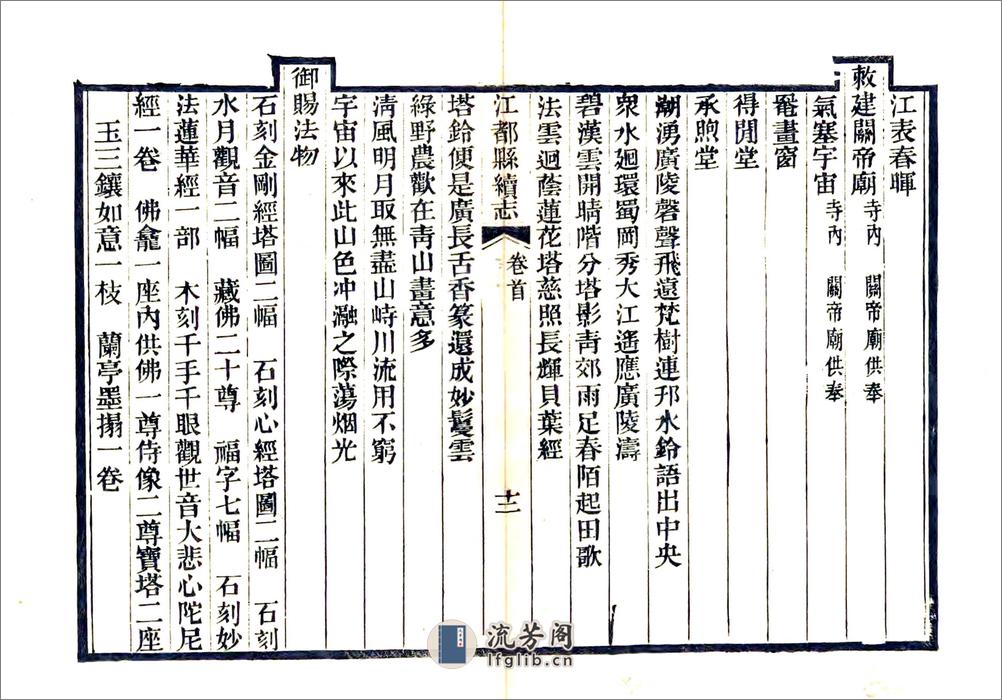 江表春暉
敕建關帝廟 寺內 關帝廟供奉
氣塞宇宙 寺內 關帝廟供奉
罨畫窗
得閒堂
承煦堂
潮湧廣陵磬聲飛遠梵樹連邗水鈴語出中央
衆水迴環蜀岡秀大江遙應廣陵濤
碧漢雲開晴喈分塔影青郊雨足春陌起田歌
法雲迴蔭蓮花塔慈照長輝貝葉經
江都縣續志 卷首 十三
塔鈴便是廣長舌香篆還成妙鬘雲
綠野農歡在青山畫意多
清風明月取無盡山峙川流用不窮
宇宙以來此山色沖瀜之際蕩烟光
御賜法物
石刻金剛經塔圖二幅 石刻心經塔圖二幅 石刻
水月觀音二幅 藏佛二十尊 福字七幅 石刻妙
法蓮華經一部 木刻千手千眼觀世音大悲心陀尼
經一卷 佛龕一座內供佛一尊侍像二尊寶塔二座
玉三鑲如意一枝 蘭亭墨搨一卷
流芳阁
lfglib.cn